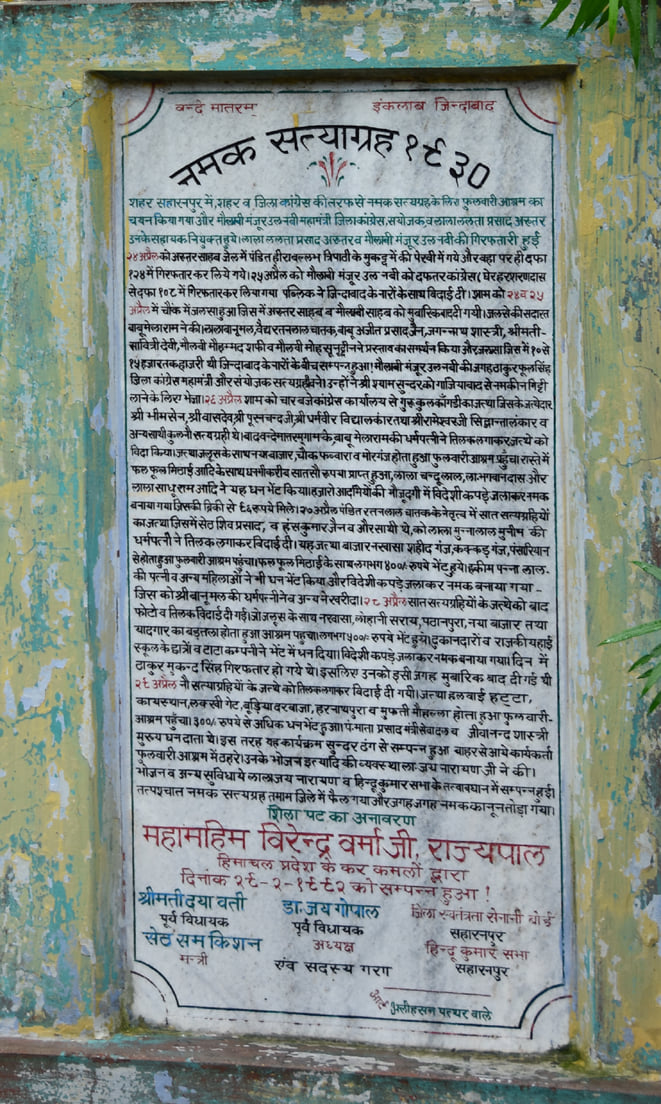 वन्दे मातरम् इंकलाब जिन्दाबाद
नमक सत्याग्रह १९३०
शहर सहारनपुर में, शहर व जिला कांग्रेस की तरफ से नमक सत्यग्रह के लिए फुलवारी आश्रम का
चयन किया गया और मौलबी मंजूर उल नबी महामंत्री जिला कांग्रेस, संयोजक, व लाला ललता प्रसाद अख्तर
उनके सहायक नियुक्त हुये। लाला ललता प्रसाद अख्तर व मौलाबी मंजूर उल नबी की गिरफतारी हुई
२४ अप्रैल को अख्तर साहब जेल में पंडित हीरा बल्लभ त्रिपाठी के मुकदमें की पेरवी में गये और वहा पर ही दफा
१२४ में गिरफतार कर लिये गये। २५ अप्रैल को मौलबी मंजूर उल नबी को दफतर कांग्रेस (घेर हरशरणदास
से दफा १०८ में गिरफतार कर लिया गया पब्लिक ने जिन्दाबाद के नारों के साथ बिदाई दी। शाम को २४ व २५
अप्रैल में चौक में जलसा हुआ जिस में अख्तर साहब व मौलाबी साहब को मुबारिकबाद दी गयी। जलसे की सदारत
बाबू मेलाराम ने की। लाला बानूमल, वैद्य रतनलाल चातक, बाबू अजीत प्रसाद जैन, जगन्नाथ शास्त्री, श्रीमती-
सावित्री देवी, मौलबी मोहम्मद शफी व मौलवी ने प्रस्ताव का समर्थन किया और जलसा जिस में १० से
१५ हजार तक हाजरी थी जिन्दाबाद के नारों के बीच सम्पन हुआ। मौलाबी मंजूर उल नबी की जगह ठाकुर फूलसिंह
जिला कांग्रेस महामंत्री और संयोजक सत्यग्रह बने। उन्होंने श्री श्याम सुन्दर को गाजियाबाद से नमकीन मिट्टी
लाने के लिए भेजा। २६ अप्रैल शाम को चार बजे कांग्रेस कार्यालय से गुरुकुल कॉगडी का जत्था जिसके जत्थेदार
श्री भीमसेन, श्री वासदेव, श्री पूरनचन्द जी, श्री धर्मवीर विद्यालंकार तथा श्री रामेश्वर जी सिद्धान्तालंकार व
अन्य साथी कुल नौ सत्यग्रही थे। बाद वन्देमातरम् गान के, बाबू मेलाराम की धर्मपत्नी ने तिलक लगाकर जत्थे को
विदा किया। जत्था जलूस के साथ नया बाजार, चौक फव्वारा व मोरगंज होता हुआ फुलवारी आश्रम पहुंचा। रास्ते में
फल फूल मिठाई आदि के साथ धनभी करीब सातसौ रूपया प्राप्त हुआ, लाला चन्दूलाल, ला॰ भगवानदास और
लाला साधूराम आदि ने यह धन भेंट किया। हजारो आदमियों की मौजूदगी में विदेशी कपड़े जलाकर नमक
बनाया गया जिसकी बिक्री से ६६ रुपये मिले। २७ अप्रैल पंडित रतनलाल चातक के नेतृत्व में सात सत्यग्रहियों
का जत्था जिस में सेठ शिव प्रसाद, व हंसकुमार जैन व और साथी थे, को लाला मुन्नालाल मुनीम की
धर्मपत्नी ने तिलक लगाकर बिदाई दी। यह जत्था बाजार नखासा शहीद गंज, कक्कड़ गंज, पंसारियान
से होता हुआ फुलवारी आश्रम पहुंचा। फल फूल मिठाई के साथ लगभग ४०० रुपये भेंट हुये। हकीम पन्ना लाल-
की पत्नी व अन्य महिलाओं ने भी धन भेंट किया और विदेशी कपड़े जलाकर नमक बनाया गया -
जिस को श्री बानूमल की धर्मपत्नी ने व अन्य ने खरीदा। २८ अप्रैल सात सत्यग्रहियों के जत्थे को बाद
फोटो व तिलक बिदाई दी गई। जो जलूस के साथ नखासा, लोहानी सराय, पठानपुरा, नया बाजार तथा
यादगार का बड़तला होता हुआ आश्रम पहुचा। लगभग ५०० रुपये भेंट हुये। दुकानदारों व राजकीय हाई
स्कूल के छात्रों व टाटा कम्पनी ने भेंट में धन दिया। विदेशी कपड़े जलाकर नमक बनाया गया। दिन में
ठाकुर मुकन्द सिंह गिरफतार हो गये थे। इसलिए उनको इसी जगह मुबारिक बाद दी गई थी
२९ अप्रैल नौ सत्याग्रहियों के जत्थे को तिलक लगाकर बिदाई दी गयी। जत्था हलवाई हट्टा,
कायस्थान, लक्खी गेट, बूड़िया दरवाजा, हरनाथपुरा व मुफती मौहल्ला होता हुआ फुलवारी-
आश्रम पहुंचा। ३०० रुपये से अधिक धन भेंट हुआ। पं॰ माता प्रसाद मंत्री सेवादल व जीवानन्द शास्त्री
मुख्य धन दाता थे। इस तरह यह कार्यक्रम सुन्दर ढंग से सम्पन्न हुआ बाहर से आये कार्यकर्ता
फुलवारी आश्रम में ठहरे। उनके भोजन इत्यादि की व्यवस्था ला॰ जय नारायण जी ने की।
भोजन व अन्य सुविधाये लाला जय नारायण व हिन्दू कुमार सभा के तत्वाबधान में सम्पन्न हुई।
तत्पश्चात नमक सत्यग्रह तमाम जिले में फैल गया और जगह जगह नमक कानून तोड़ा गया।
शिला पट का अनावरण
महामहिम विरेन्द्र वर्मा जी, राज्यपाल
हिमाचल प्रदेश के कर कमलों द्वारा
दिनांक २९-२-१९९२ को सम्पन्न हुआ!
श्रीमती दया वती डा॰ जय गोपाल जिला स्वतंत्रता सेनानी बोर्ड
पूर्व विधायक पूर्व विधायक सहारनपुर
सेठ सम किशन अध्यक्ष हिन्दू कुमार सभा
मन्त्री एंव सदस्य गण सहारनपुर
अलीहसन पत्थर वाले